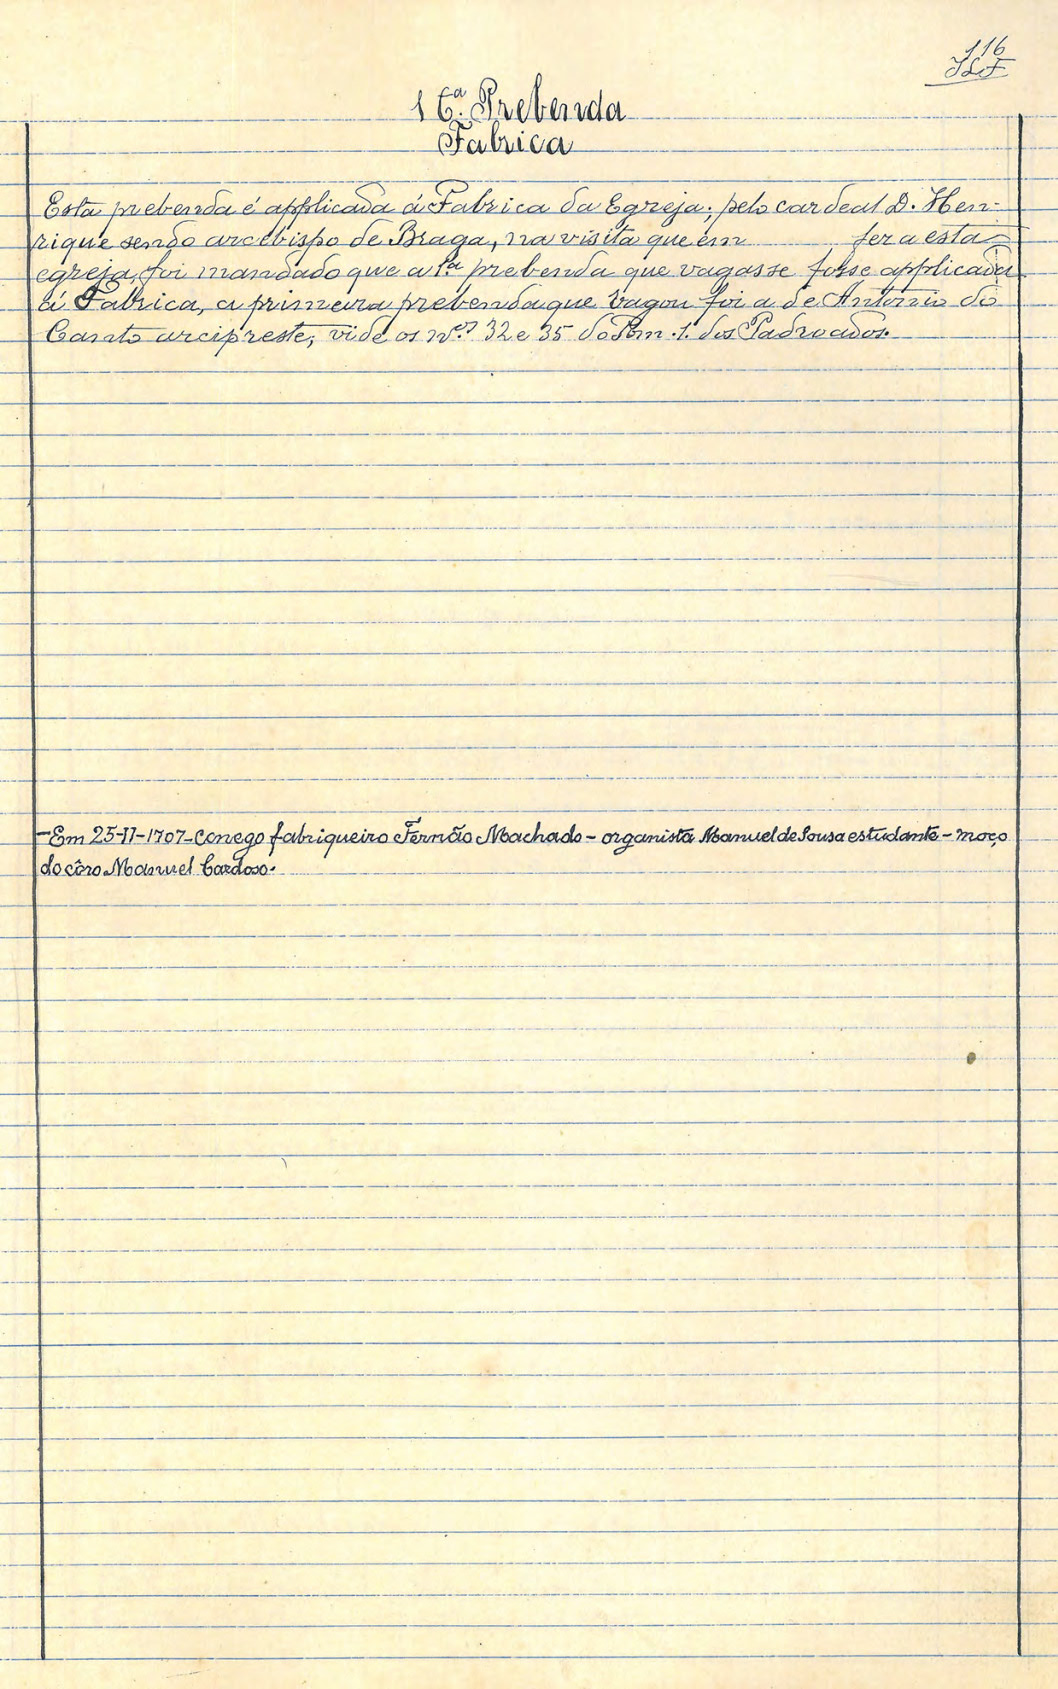 116
16.ª Prebenda
Fabrica
Esta prebenda é applicada á Fabrica da Egreja; pelo cardeal D. Hen-
rique sendo arcebispo de Braga, na visita que em fez a esta
egreja, foi mandado que a 1.ª prebenda que vagasse fosse applicada
á Fabrica, a primeira prebenda que vagou foi a de Antonio do
Canto arcipreste, vide os n.os 32 e 35 do Tom. 1. dos Padroados.
-Em 25-11-1707-Conego fabriqueiro Fernão Machado - organista Manuel de Sousa estudante - moço
do côro Manuel Cardoso.